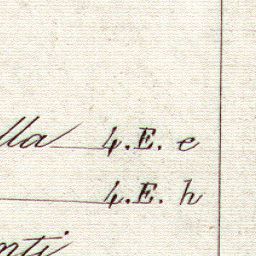 lla 4.E. e
4.E. h
nti